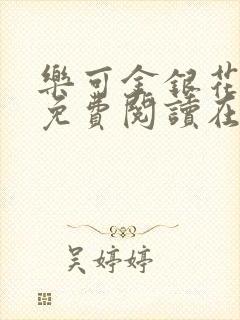 樂可金銀花
免費閱讀在
吴婷婷